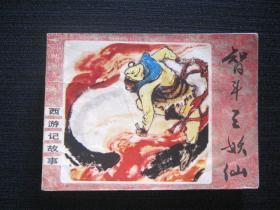 智斗三妖仙
西游记故事